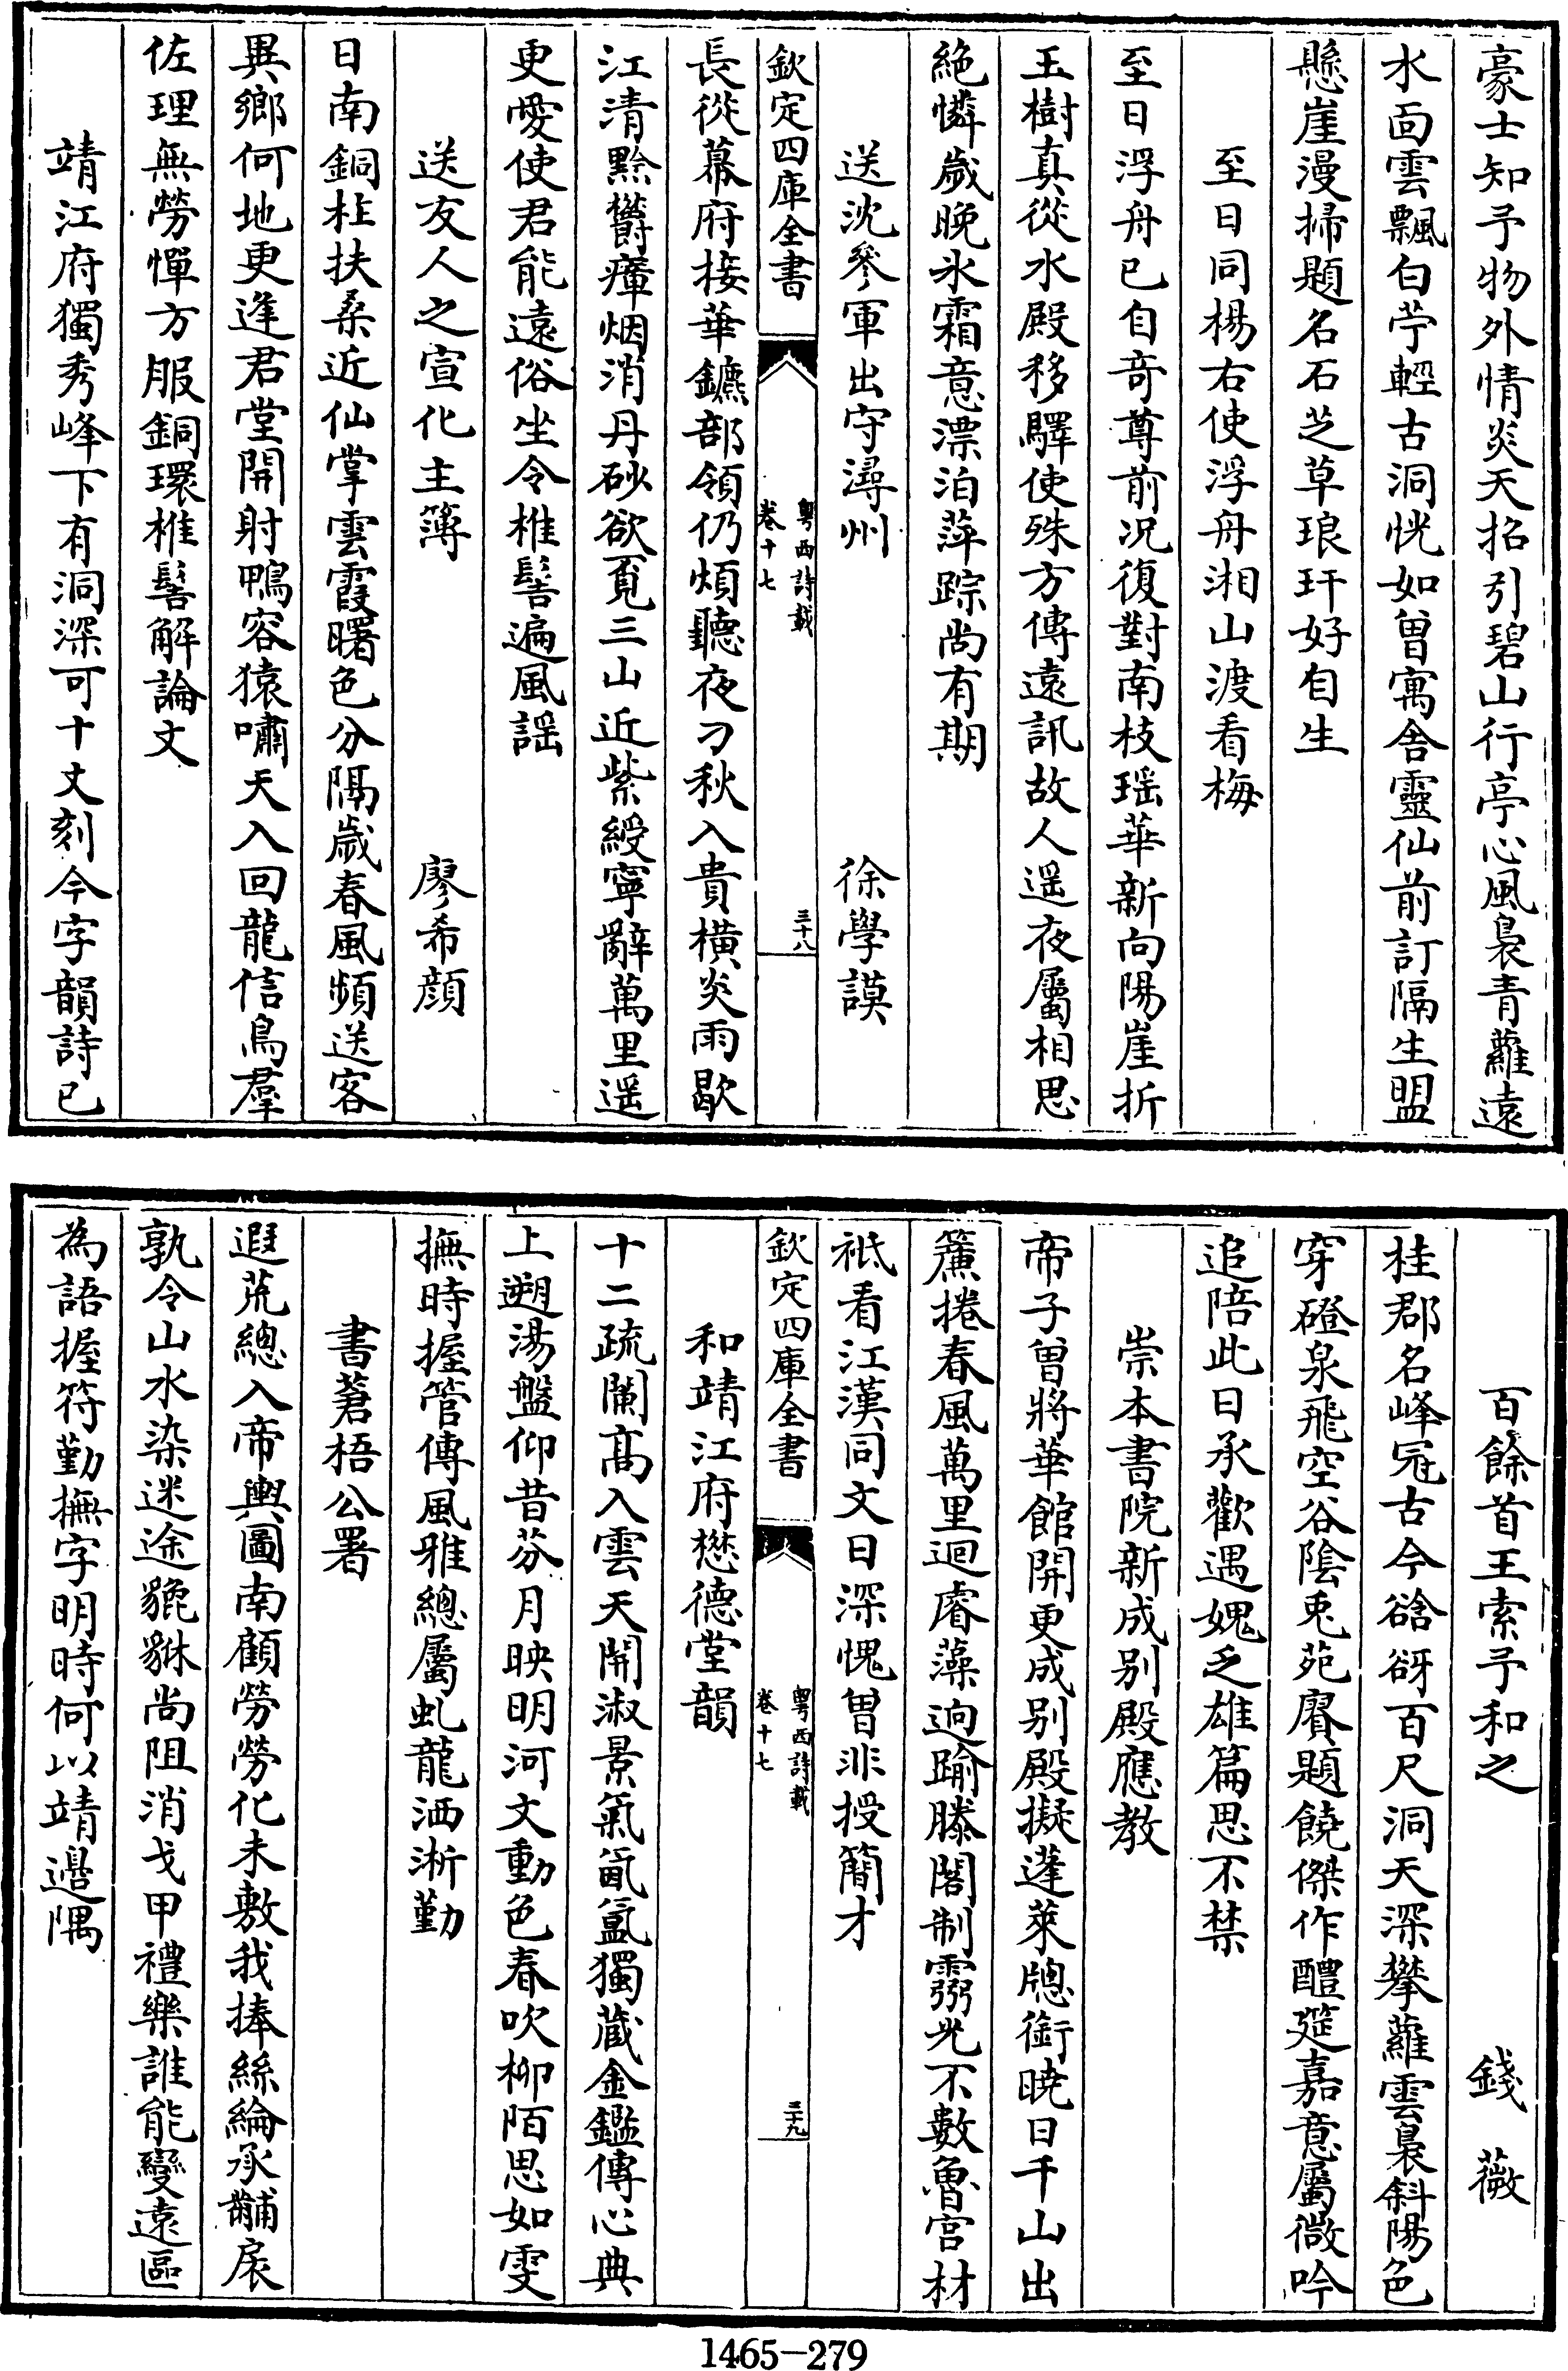 豪士知予物外情炎天招引碧山行亭心風裊青蘿遠
水面雲飄白苧輕古洞恍如曾寓舍靈仙前訂隔生盟
懸崖漫掃題名石芝草琅玕好自生
至日同楊右使浮舟湘山渡看梅
至日浮舟已自竒尊前况復對南枝瑶華新向陽崖折
玉樹真從水殿移驛使殊方傳遠訊故人遥夜屬相思
絶憐歲晚氷霜意漂泊萍踪尚有期
送沈參軍出守潯州 徐學謨
欽定四庫全書 粤西詩載 卷十七 三十八
長從幕府接華鑣部領仍煩聽夜刁秋入貴橫炎雨歇
江清黔鬱瘴烟消丹砂欲覔三山近紫綬寧辭萬里遥
更愛使君能遠俗坐令椎髻遍風謡
送友人之宣化主簿 廖希顔
日南銅柱扶桑近仙掌雲霞曙色分隔歲春風頻送客
異鄉何地更逢君堂開射鴨容猿嘯天入回龍信鳥羣
佐理無勞憚方服銅環椎髻解論文
靖江府獨秀峰下有洞深可十丈刻今字韻詩已
百餘首王索予和之 錢薇
桂郡名峰冠古今谽谺百尺洞天深攀蘿雲裊斜陽色
穿磴泉飛空谷陰兎苑賡題饒傑作醴筵嘉意屬微吟
追陪此日承歡遇媿乏雄篇思不禁
崇本書院新成别殿應教
帝子曽將華館開更成别殿擬蓬萊牎銜曉日千山出
簾捲春風萬里迴睿藻迥踰滕閣制靈光不數魯宫材
祗看江漢同文日深愧曽非授簡才
欽定四庫全書 粤西詩載 卷十七 三十九
和靖江府懋德堂韻
十二疏闌髙入雲天開淑景氣氤氲獨蔵金鑑傳心典
上遡湯盤仰昔芬月映明河文動色春吹柳陌思如雯
撫時握管傳風雅總屬虬龍洒淅勤
書蒼梧公署
遐荒總入帝輿圖南顧勞勞化未敷我捧絲綸承黼扆
孰令山水染迷途貔貅尚阻消戈甲禮樂誰能變遠區
為語握符勤撫字明時何以靖邊隅
1465-279